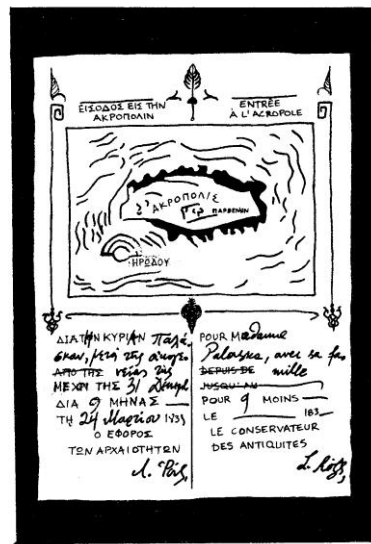 ΕΙΣΟΔΟΣ ΕΙΣ ΤΗΝ
ΑΚΡΟΠΟΛΙΝ
ENTRÉE
À L'ACROPOLE
ΑΚΡΟΠΟΛΙΣ
ΠΑΡΘΕΝΩΝ
ΗΡΩΔΟΥ
ΔΙΑ ΤΗΝ ΚΥΡΙΑΝ Παλά-
σκαν, μετά της οικογε-
ΑΠΟ ΤΗΣ νείας της
ΜΕΧΡΙ ΤΗΣ 31
ΔΙΑ 9 ΜΗΝΑΣ
ΤΗ 24 Μαρτίου
Ο ΕΦΟΡΟΣ
ΤΩΝ ΑΡΧΑΙΟΤΗΤΩΝ
POUR Madame
avec sa fa-
DEPUIS DE mille
JUSQU'AU
POUR 9 MOINS
LE 183
LE CONSERVATEUR
DES ANTIQUITES